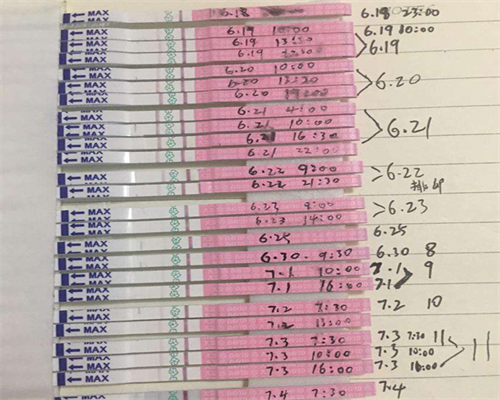 MAX 6.18 6.18 23:00
MAX 6.19 10:00 6.19 10:00
MAX 6.19 6.19
MAX 6.19
MAX 6.20 10:00
MAX 6.20 6.20
MAX 6.20 19:00
MAX 6.21 4:00
MAX 6.21 10:00 6.21
MAX 16:30
MAX 6.21 22:00
MAX 6.22 9:00 6.22
MAX 6.22 21:30 排卵
MAX 6.23 6.23
MAX 6.23 14:00
MAX 6.25 6.25
MAX 6.30. 9:30 6.30 8
MAX 7.1 10:00 7.1 9
MAX 7.1 16:00 7.1
MAX 7.2 7:30 7.2 10
MAX 7.2
MAX 7.3 7:30 7.3 7:30 11
MAX 7.3 10:00 7.3 10:00 11
MAX 7.3 16:00 7.3 16:00
MAX 7.4 7:30 7.4